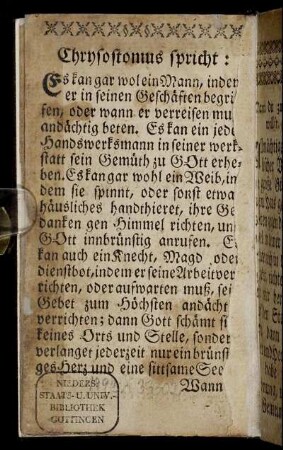 Chrysostomus spricht:
Es kan gar wol ein Mann, indem
er in seinen Geschäften begrif
fen, oder wann er verreisen muß
andächtig beten. Es kan ein jeder
Handswerksmann in seiner werk-
statt sein Gemüth zu GOtt erhe-
ben. Es kan gar wohl ein Weib, in
dem sie spinnt, oder sonst etwa
häusliches handthieret, ihre Ge
danken gen Himmel richten, un
GOtt innbrünstig anrufen. E
kan auch ein Knecht, Magd ode
dienstbot, indem er seine Arbeit ver
richten, oder aufwarten muß, sei
Gebet zum Höchsten andächt
verrichten; dann Gott schämt si
keines Orts und Stelle, sonder
verlanget jederzeit nur ein brünst
ges Herz und eine sittsame See
Wann
NIEDERS.
STAATS- U. UNIV.-
BIBLIOTHEK
GÖTTINGEN